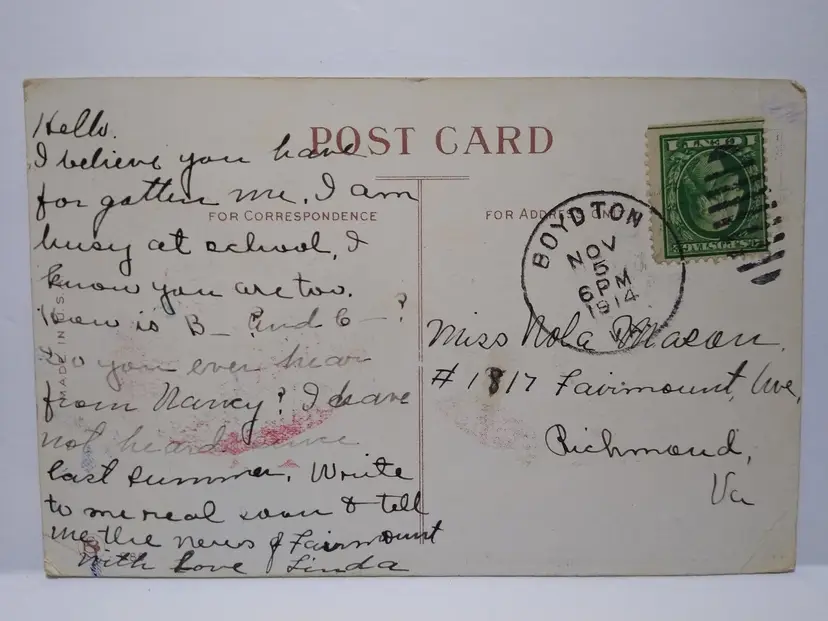 POST CARD
FOR CORRESPONDENCE
FOR ADDRESS ON
MADE IN U.S.
Hello.
I believe you have
for gotten me. I am
busy at school, I
know you are too.
How is B— and C—?
Do you ever hear
from Nancy? I have
not heard since
last summer. Write
to me real soon & tell
me the news of Fairmount
With Love Linda
BOYDTON
NOV
5
6PM
1914
VA
Miss Nola Mason.
# 1817 Fairmount, Ave,
Richmond,
Va
U.S. POSTAGE
1 CENT 1